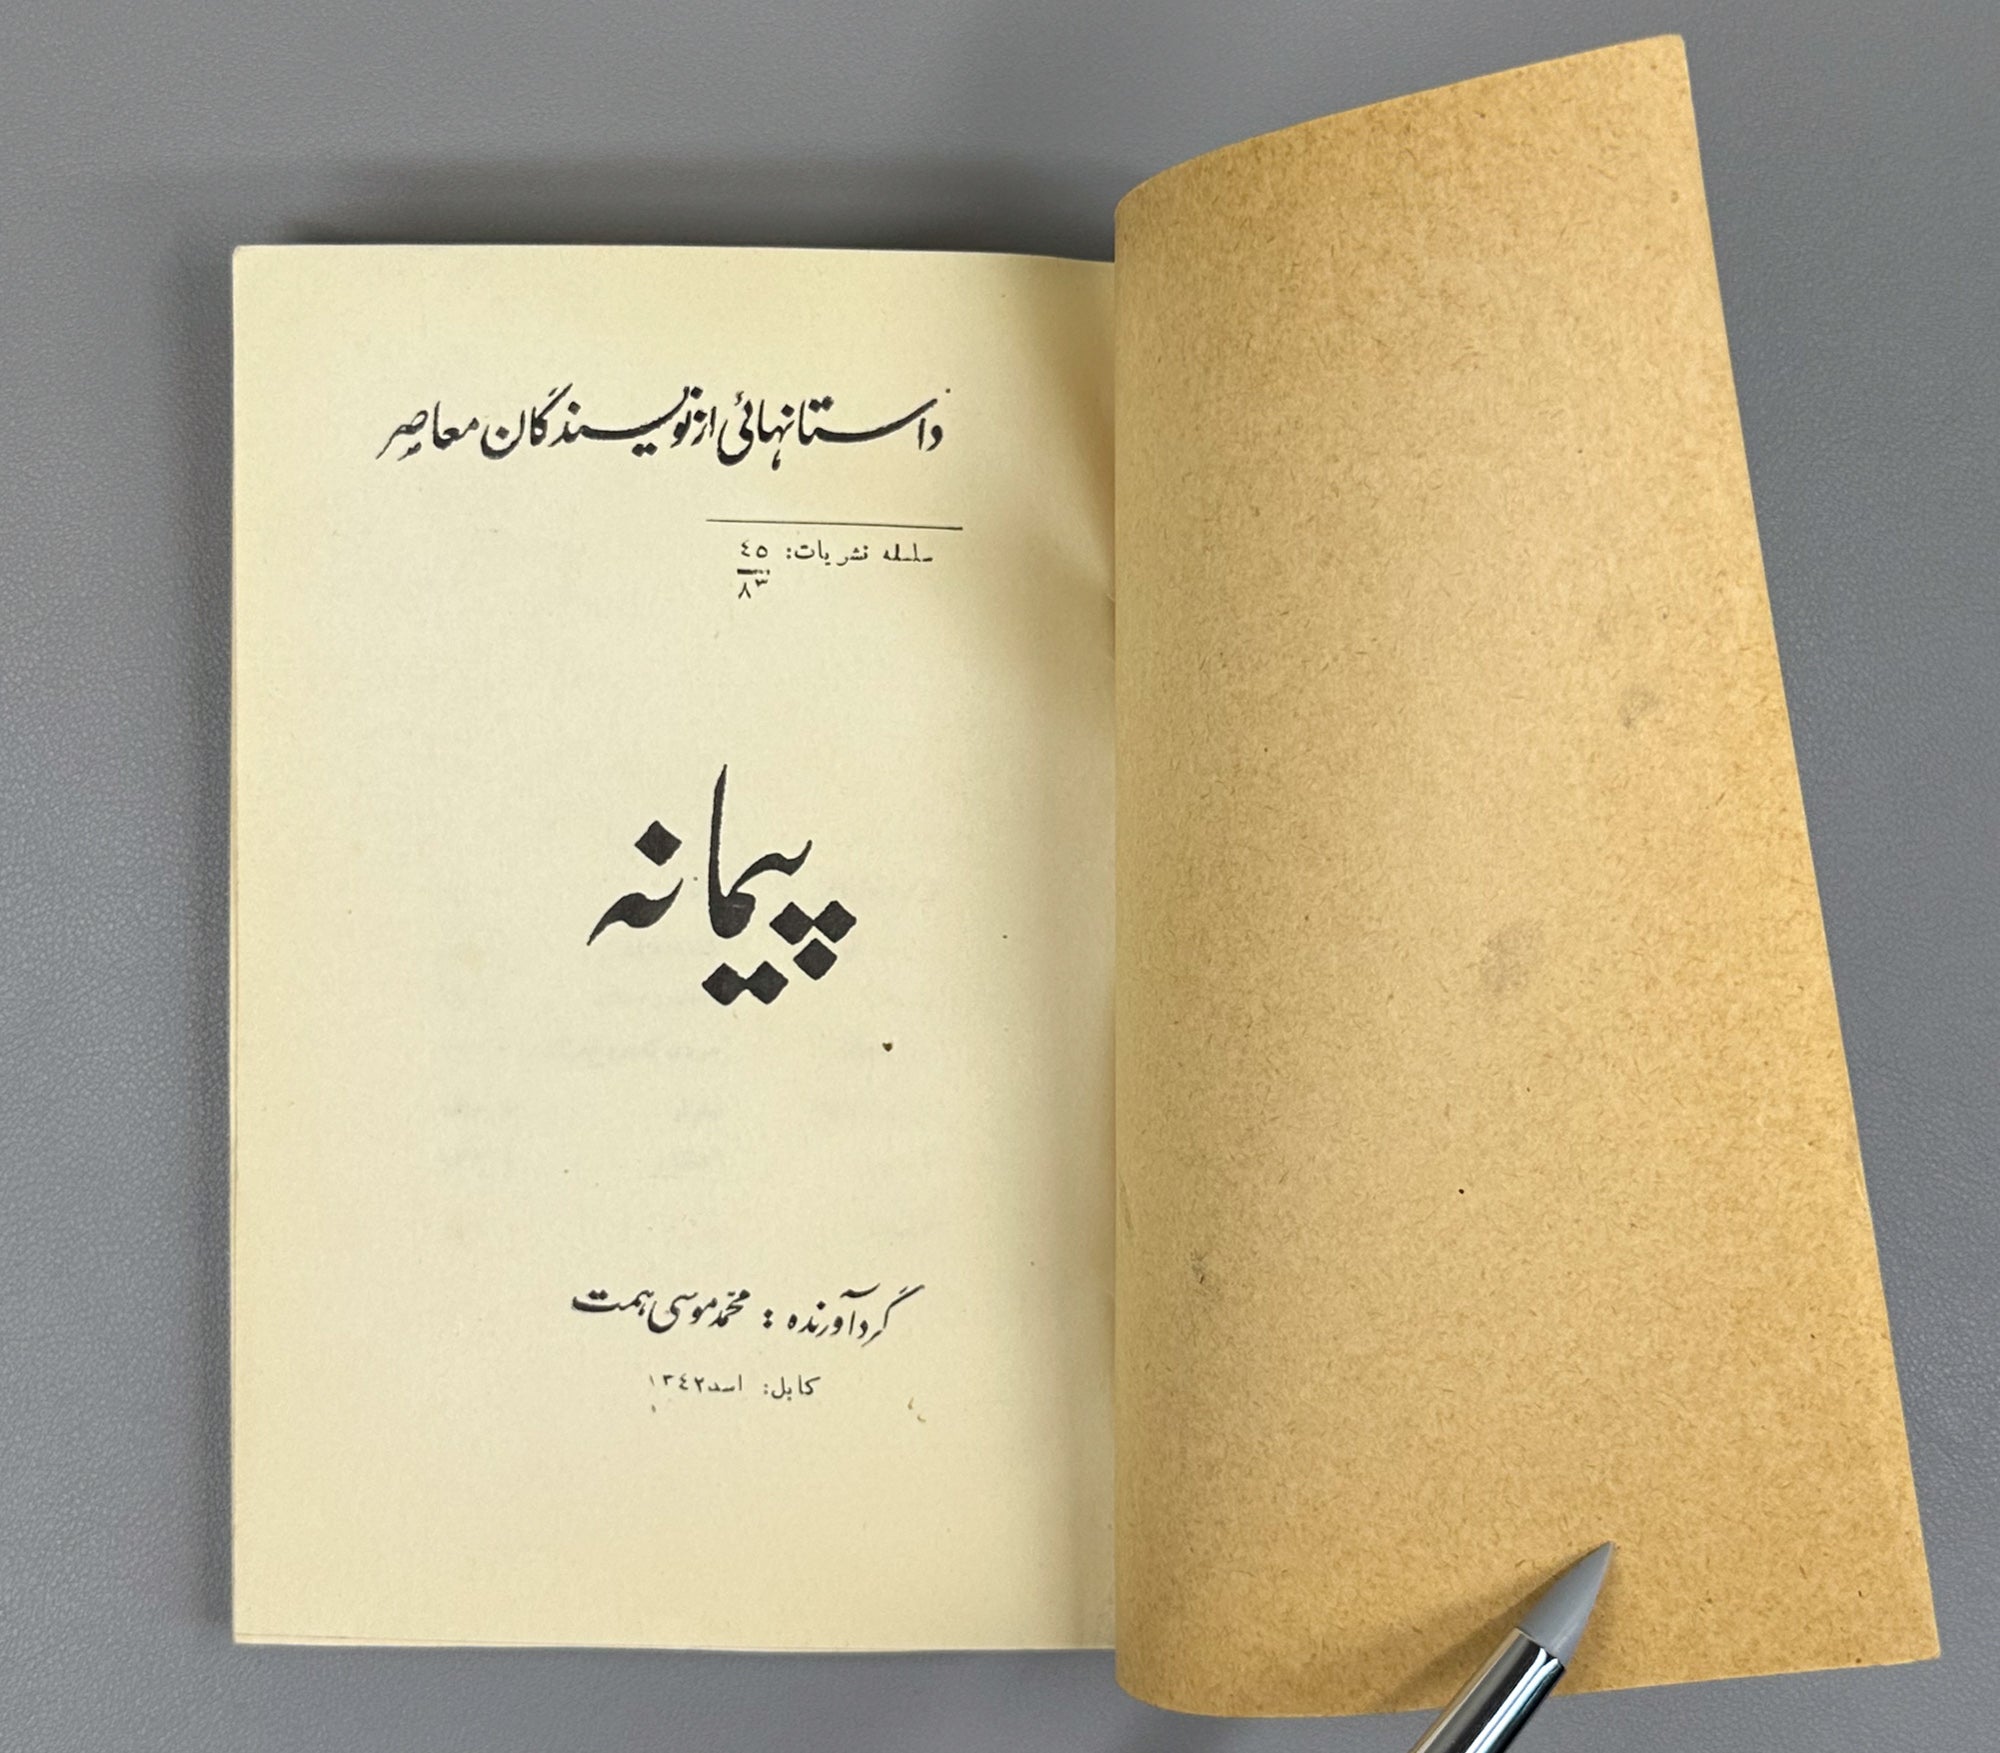 داستانهائی از نویسندگان معاصر
سلسله نشریات: ٤٥
٨٣
پیمانه
گردآورنده : محمد موسی همت
کابل: اسد ١٣٤٢